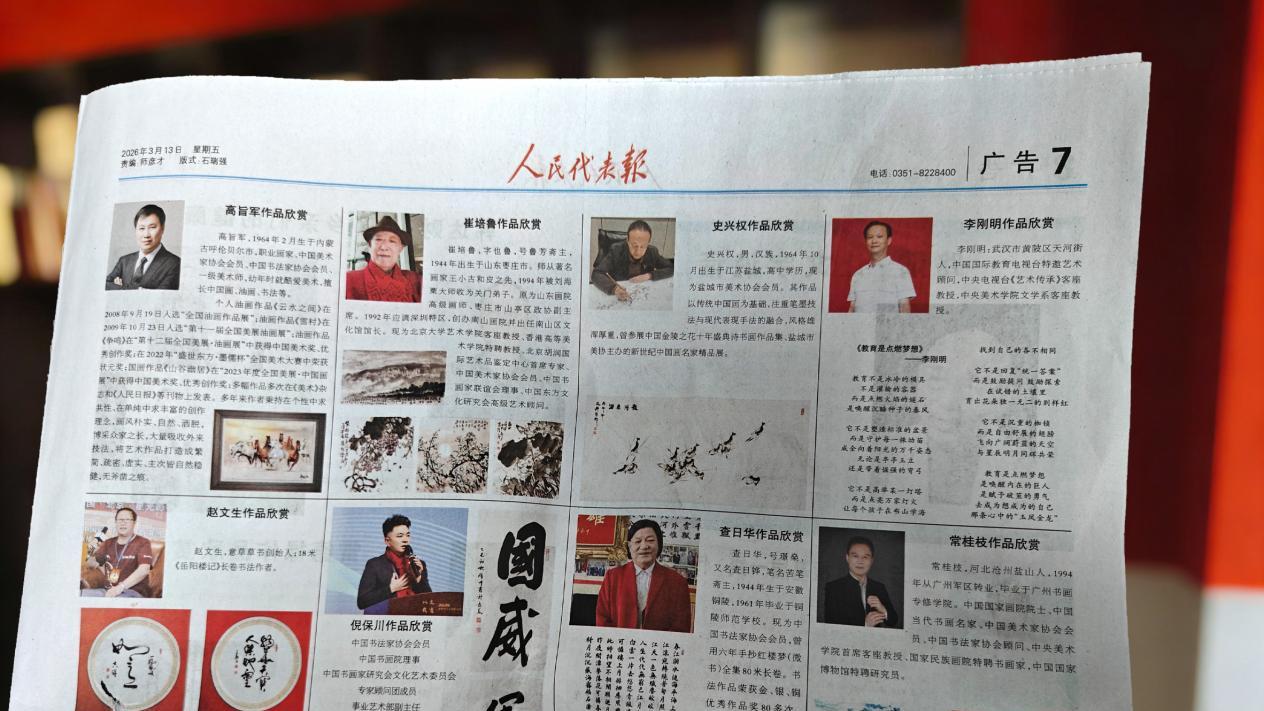 2026年3月13日 星期五
责编 师彦才 版式:石瑞强
人民代表報
电话:0351-8228400
广告 7
高旨军作品欣赏
高旨军,1964年2月生于内蒙
古呼伦贝尔市,职业画家、中国美术
家协会会员、中国书法家协会会员、
一级美术师,幼年时就酷爱美术,擅
长中国画、油画、书法等。
个人油画作品《云水之间》在
2008年9月19日入选“全国油画作品展”;油画作品《雪村》在
2009年10月23日入选“第十一届全国美展油画展”;油画作品
《争鸣》在“第十二届全国美展·油画展”中获得中国美术奖、优
秀创作奖;在2022年“盛世东方·墨儒杯”全国美术大赛中荣获
状元奖;国画作品《山谷幽居》在“2023年度全国美展·中国画
展”中获得中国美术奖、优秀创作奖;多幅作品多次在《美术》杂
志和《人民日报》等刊物上发表。多年来作者秉持在个性中求
共性、在单纯中求丰富的创作
理念,画风朴实、自然、洒脱,
博采众家之长,大量吸收外来
技法,将艺术作品打造成繁
简、疏密、虚实、主次皆自然稳
健,无斧凿之痕。
崔培鲁作品欣赏
崔培鲁,字也鲁,号鲁芳斋主,
1944年出生于山东枣庄市。师从著名
画家王小古和皮之先,1994年被刘海
粟大师收为关门弟子。原为山东画院
高级画师、枣庄市山亭区政协副主
席。1992年应调深圳特区,创办南山画院并出任南山区文
化馆馆长。现为北京大学艺术学院客座教授、香港高等美
术学院特聘教授、北京胡润国
际艺术品鉴定中心首席专家、
中国美术家协会会员、中国书
画家联谊会理事、中国东方文
化研究会高级艺术顾问。
史兴权作品欣赏
史兴权,男,汉族,1964年10
月出生于江苏盐城,高中学历,现
为盐城市美术协会会员。其作品
以传统中国画为基础,注重笔墨技
法与现代表现手法的融合,风格雄
浑厚重,曾参展中国金陵之花十年盛典诗书画作品集、盐城市
美协主办的新世纪中国画名家精品展。
李刚明作品欣赏
李刚明:武汉市黄陂区天河街
人,中国国际教育电视台特邀艺术
顾问,中央电视台《艺术传承》客座
教授,中央美术学院文学系客座教
授。
《教育是点燃梦想》
——李刚明
教育不是冰冷的模具
不是灌输的容器
而是点燃火焰的燧石
是唤醒沉睡种子的春风
它不是塑造标准的盆景
而是守护每一株幼苗
成全向着阳光的万千姿态
无论是亭亭玉立
还是带着倔强的弯弓
它不是高举某一灯塔
而是点亮万家灯火
让每个孩子在书山学海
找到自己的各不相同
它不是回复“统一答案”
而是鼓励提问 鼓励探索
在试错的土壤里
育出花朵独一无二的别样红
它不是沉重的枷锁
而是自由舒展的翅膀
飞向广阔蔚蓝的天空
与星辰明月同辉共荣
教育是点燃梦想
是唤醒内在的巨人
是赋予破茧的勇气
去成为想成为的自己
那条心中的“玉凤金龙”
赵文生作品欣赏
赵文生,意草草书创始人;18米
《岳阳楼记》长卷书法作者。
倪保川作品欣赏
中国书法家协会会员
中国书画院理事
中国书画家研究会文化艺术委员会
专家顾问团成员
事业艺术部副主任
國威
查日华作品欣赏
查日华,号璟燊,
又名查日铧,笔名苦笔
斋主,1944年生于安徽
铜陵,1961年毕业于铜
陵师范学校。现为中
国书法家协会会员,曾
用六年手秒红楼梦(微
书)全集80米长卷。书
法作品荣获金、银、铜
优秀作奖80多次,
常桂枝作品欣赏
常桂枝,河北沧州盐山人,1994
年从广州军区转业,毕业于广州书画
专修学院。中国国家画院院士,中国
当代书画名家,中国美术家协会会
员,中国书法家协会顾问,中央美术
学院首席客座教授、国家民族画院特聘书画家,中国国家
博物馆特聘研究员。